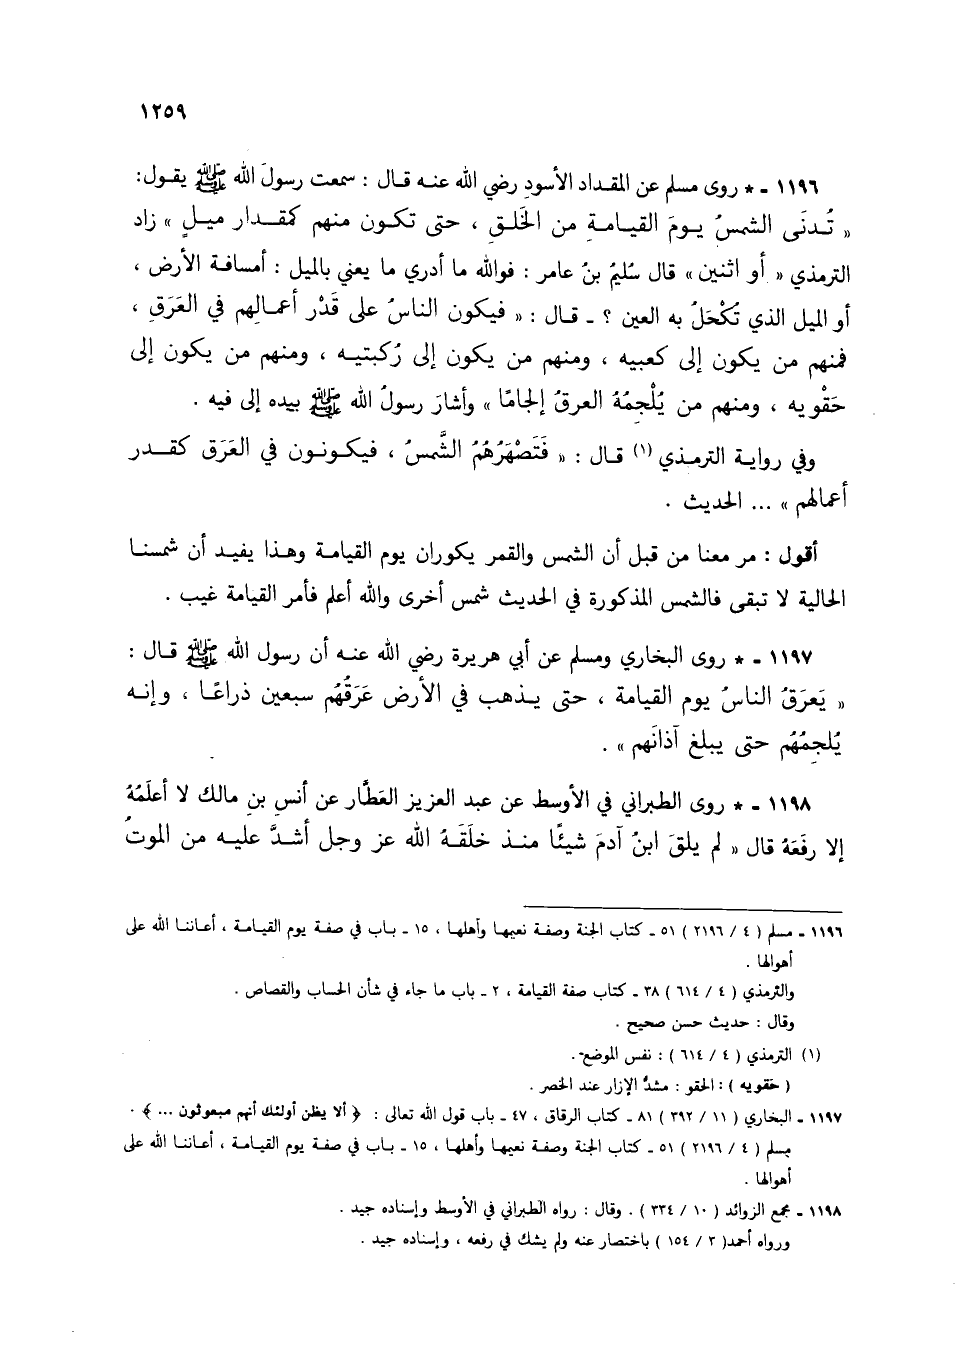 ١٢٥٩
١١٩٦ - * روى مسلم عن المقداد الأسودِ رضي الله عنه قال : سمعت رسولَ الله ﷺ يقول:
« تُدنَى الشمسُ يومَ القيامةِ من الخَلقِ ، حتى تكون منهم كمقدار ميلٍ » زاد
الترمذي « أو اثنين » قال سُليمُ بنُ عامر : فوالله ما أدري ما يعني بالميل : أمسافة الأرض ،
أو الميل الذي تُكْحَلُ به العين ؟ - قال : « فيكون الناسُ على قَدْر أعمالِهم في العَرَقِ ،
فمنهم من يكون إلى كعبيه ، ومنهم من يكون إلى رُكبتيه ، ومنهم من يكون إلى
حَقْويه ، ومنهم من يُلْجِمُهُ العرقُ إلجامًا » وأشارَ رسولُ الله ﷺ بيده إلى فيه .
وفي رواية الترمذي (١) قال : « فَتَصْهَرُهُمُ الشَّمسُ ، فيكونون في العَرَق كقدر
أعمالهم » ... الحديث .
أقول : مر معنا من قبل أن الشمس والقمر يكوران يوم القيامة وهذا يفيد أن شمسنا
الحالية لا تبقى فالشمس المذكورة في الحديث شمس أخرى والله أعلم فأمر القيامة غيب .
١١٩٧ - * روى البخاري ومسلم عن أبي هريرة رضي الله عنه أن رسول الله ﷺ قال :
« يَعرَقُ الناسُ يوم القيامة ، حتى يذهب في الأرض عَرَقُهُم سبعين ذراعًا ، وإنه
يُلجِمُهُم حتى يبلغ آذانَهم » .
١١٩٨ - * روى الطبراني في الأوسط عن عبد العزيز العَطَّار عن أنسِ بنِ مالك لا أعلَمُهُ
إلا رفَعَهُ قال « لم يلقَ ابنُ آدمَ شيئًا منذ خلَقَهُ الله عز وجل أشدَّ عليه من الموتُ
١١٩٦ - مسلم ( ٤ / ٢١٩٦ ) ٥١ - كتاب الجنة وصفة نعيمها وأهلها ، ١٥ - باب في صفة يوم القيامة ، أعاننا الله على
أهوالها .
والترمذي ( ٤ / ٦١٤ ) ٣٨ - كتاب صفة القيامة ، ٢ - باب ما جاء في شأن الحساب والقصاص .
وقال : حديث حسن صحيح .
(١) الترمذي ( ٤ / ٦١٤ ) : نفس الموضع .
( حقويه ) : الحقو : مشدُّ الإزار عند الخصر .
١١٩٧ - البخاري ( ١١ / ٣٩٢ ) ٨١ - كتاب الرقاق ، ٤٧ - باب قول الله تعالى : ﴿ ألا يظن أولئك أنهم مبعوثون ... ﴾ .
مسلم ( ٤ / ٢١٩٦ ) ٥١ - كتاب الجنة وصفة نعيمها وأهلها ، ١٥ - باب في صفة يوم القيامة ، أعاننا الله على
أهوالها .
١١٩٨ - مجمع الزوائد ( ١٠ / ٣٣٤ ) . وقال : رواه الطبراني في الأوسط وإسناده جيد .
ورواه أحمد( ٣ / ١٥٤ ) باختصار عنه ولم يشك في رفعه ، وإسناده جيد .